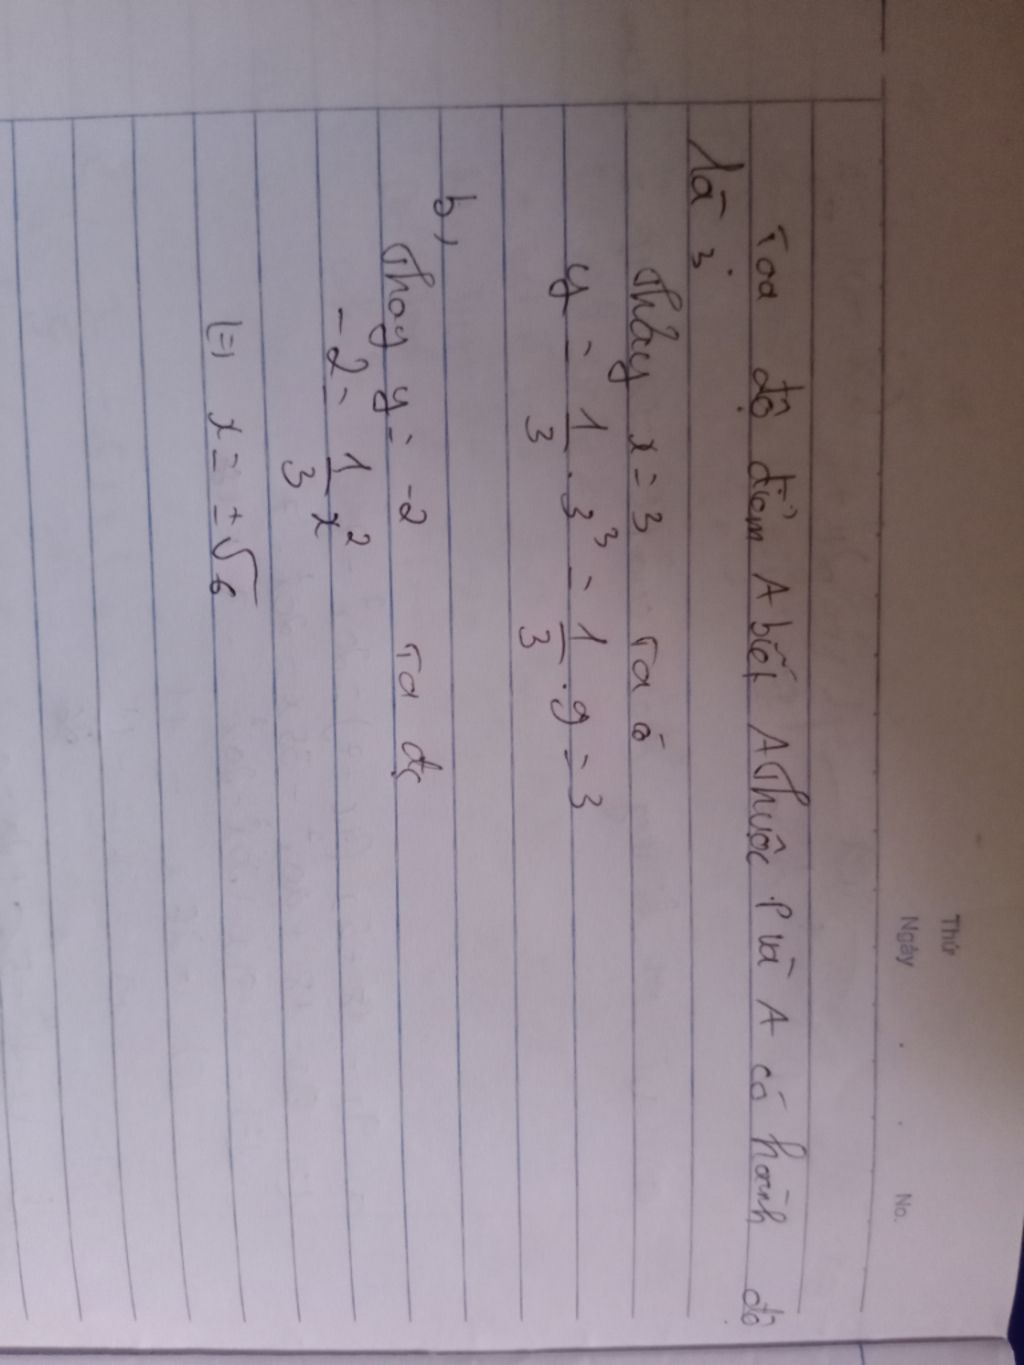 Thứ
Ngày . . No.
Toạ độ điểm A biết A Thuộc P và A có hoành độ
là 3.
Thây x = 3 Ta có
y = 1/3 . 3³ = 1/3 . 9 = 3
b,
Thay y = -2 Ta đc
-2 = 1/3 x²
(=) x = ± √6